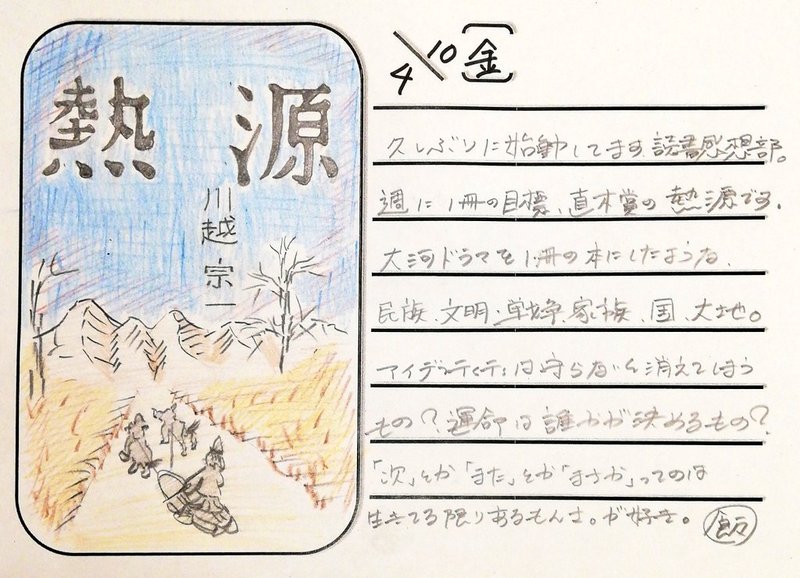 熱源
川越宗一
4/10〔金〕
久しぶりに始動してます読書感想部。
週に1冊の目標、直木賞の熱源です。
大河ドラマを1冊の本にしたような、
民族、文明、戦争、家族、国、大地。
アイデンティティは守らないと消えてしまう
もの?運命は誰かが決めるもの?
「次」とか「また」とか「まさか」ってのは
生きてる限りあるもんさ。が好き。
飯